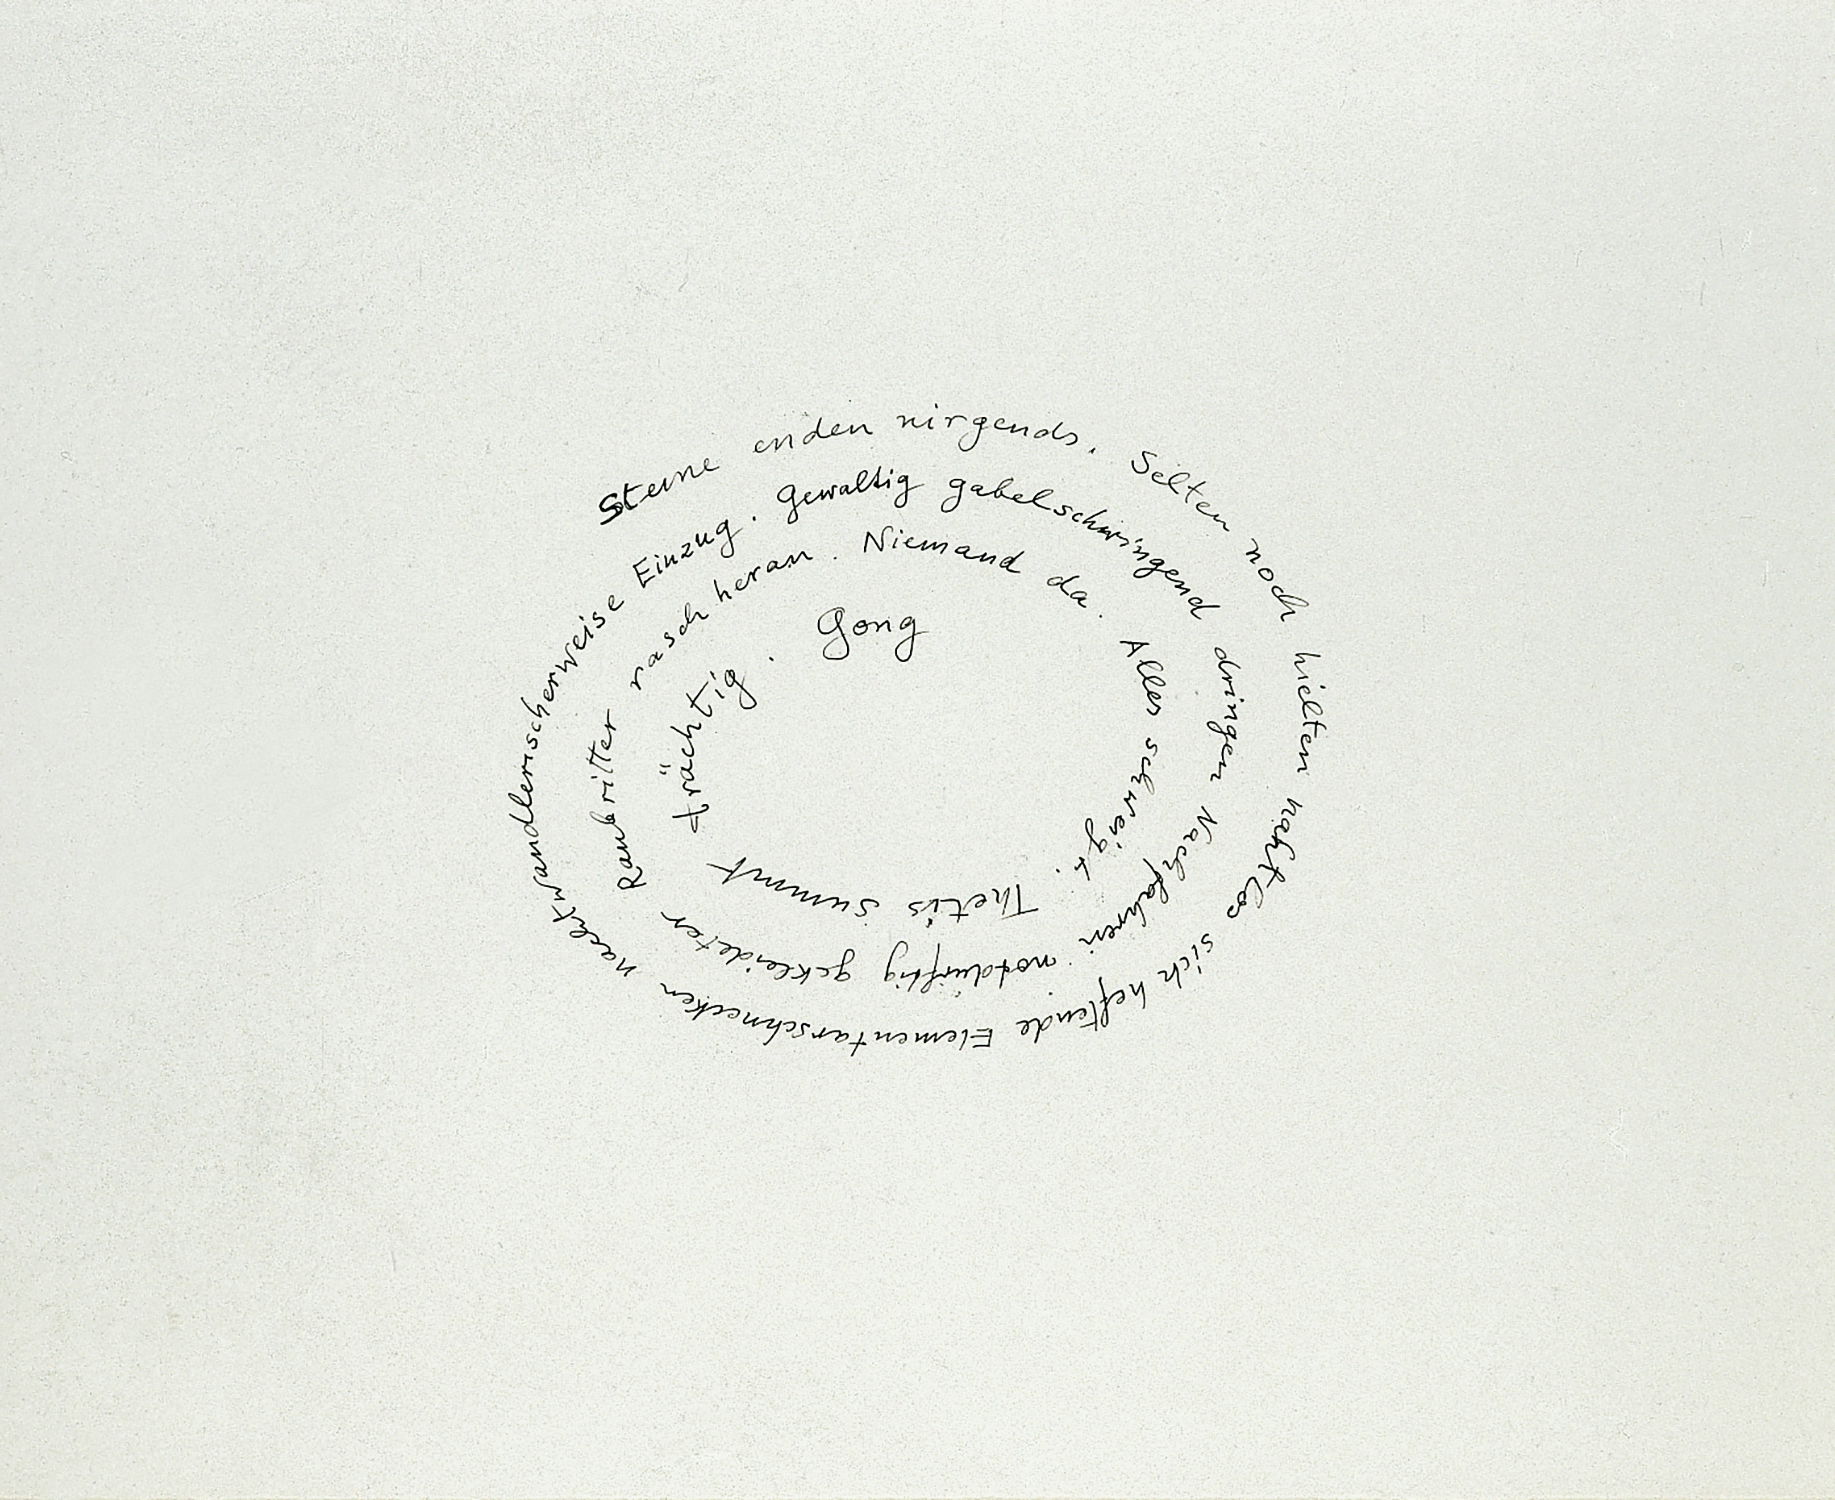 Sterne enden nirgends. Selten noch hielten nahtlos sich heftende Elementarschnecken nachtwandlerischerweise Einzug. Gewaltig gabelschwingend dringen Nachfahren notdürftig gekleideter Raubritter rasch heran. Niemand da. Alles schweigt. Thetis summt trächtig. Gong